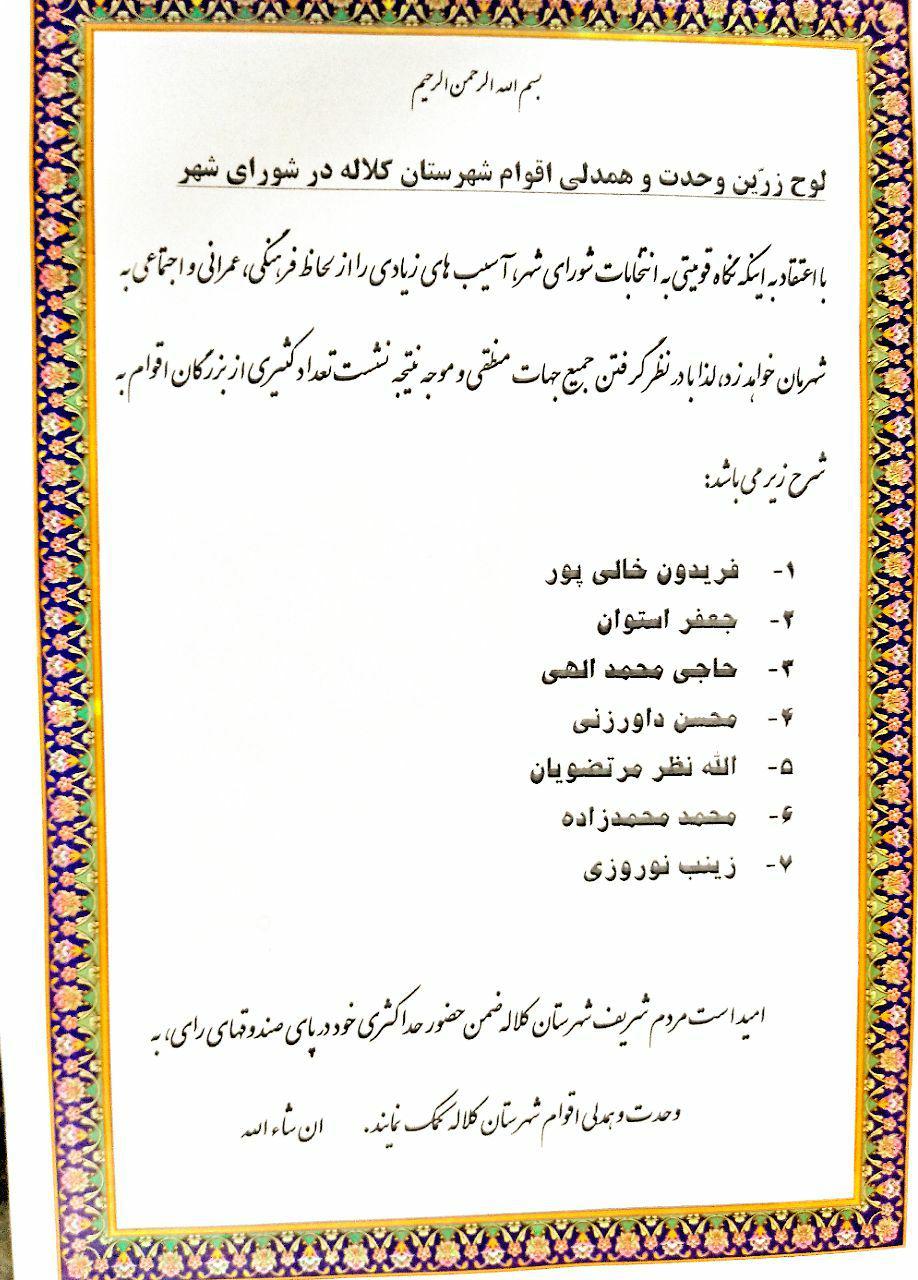 بسم الله الرحمن الرحیم
لوح زرّین وحدت و همدلی اقوام شهرستان کلاله در شورای شهر
با اعتقاد به اینکه نگاه قومیتی به انتخابات شورای شهر، آسیب های زیادی را از لحاظ فرهنگی، عمرانی و اجتماعی به
شهرمان خواهد زد، لذا با در نظر گرفتن جمیع جهات منطقی و موجه نتیجه نشست تعداد کثیری از بزرگان اقوام به
شرح زیر می باشد:
۱- فریدون خالی پور
۲- جعفر استوان
۳- حاجی محمد الهی
۴- محسن داورزنی
۵- الله نظر مرتضویان
۶- محمد محمدزاده
۷- زینب نوروزی
امید است مردم شریف شهرستان کلاله ضمن حضور حداکثری خود در پای صندوقهای رای، به
وحدت و همدلی اقوام شهرستان کلاله کمک نمایند. ان شاء الله